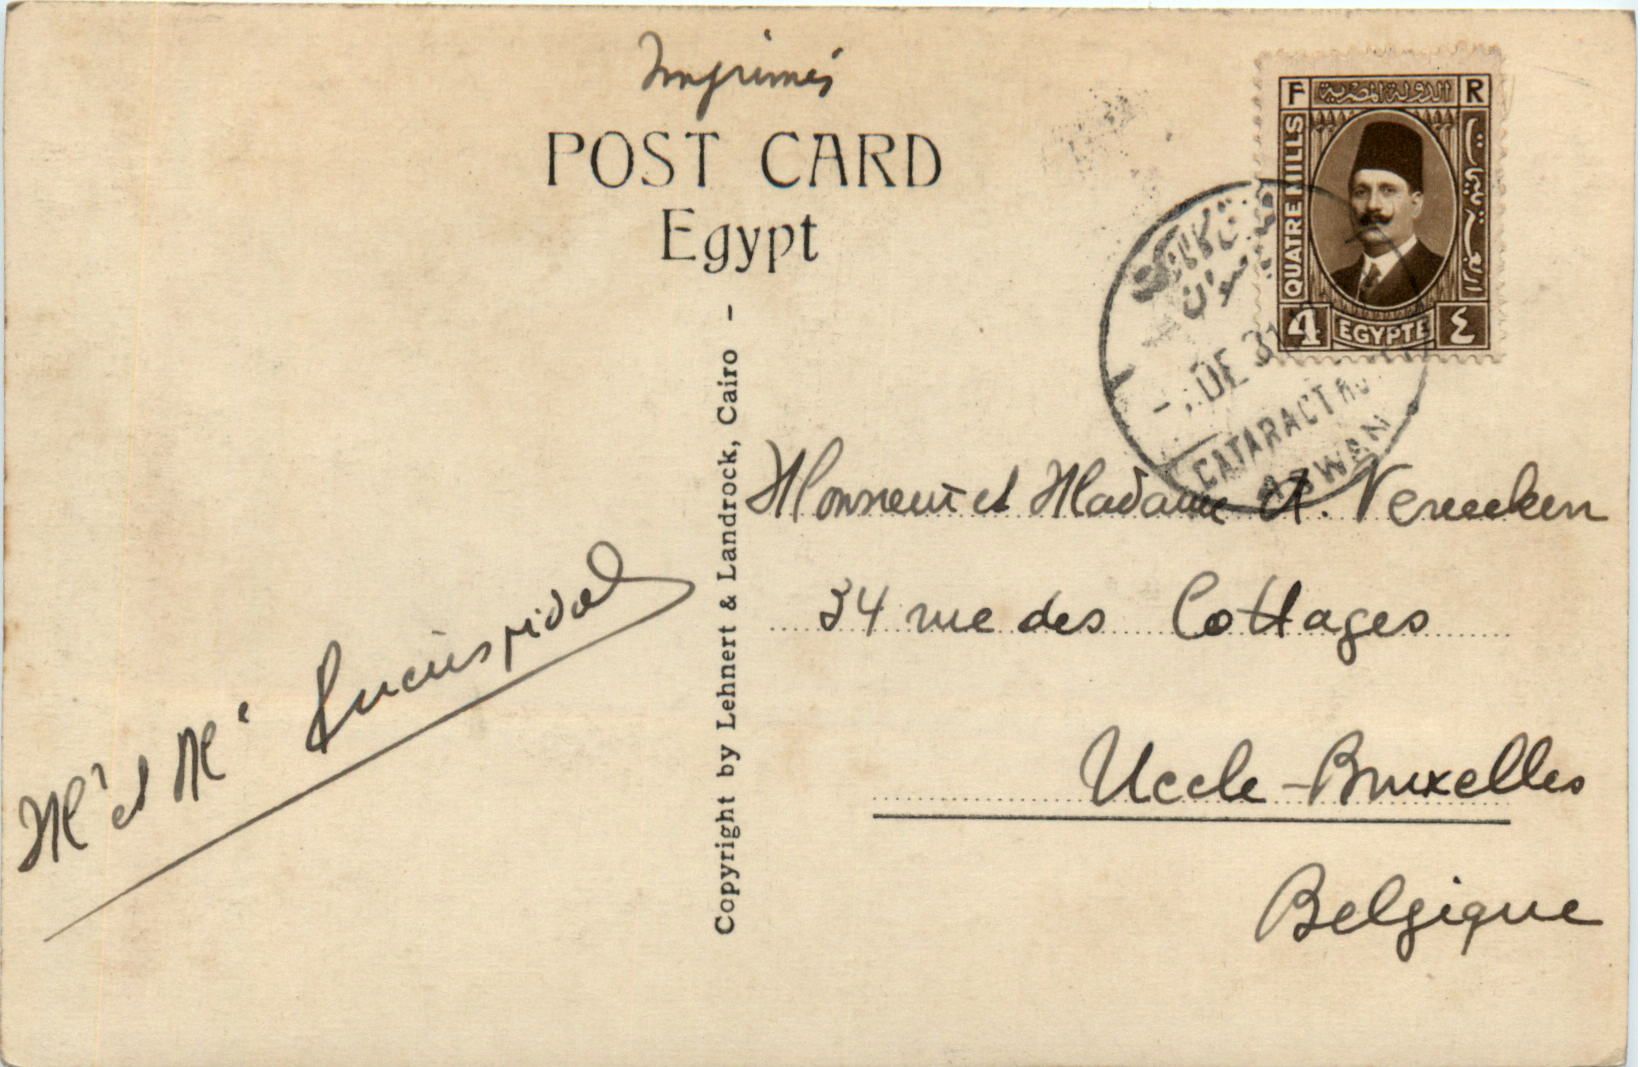 Imprimés
POST CARD
Egypt
F الدولة المصرية R
QUATRE MILLS
4 EGYPTE ٤
DE 31
CATARACT
ASWAN
Copyright by Lehnert & Landrock, Cairo -
Monsieur et Madame A. Vereecken
34 rue des Cottages
Uccle-Bruxelles
Belgique
Mr et Me